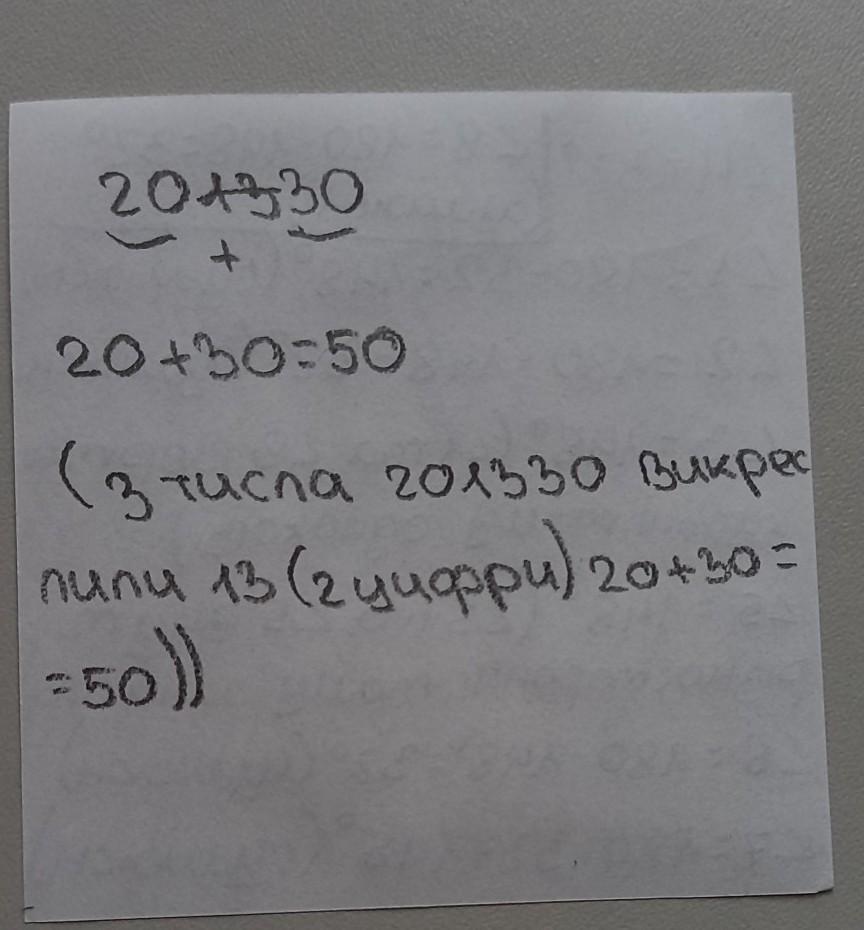 201330
+
20+30=50
(з числа 201330 викрес
лили 13 (2 цифри) 20+30=
=50))